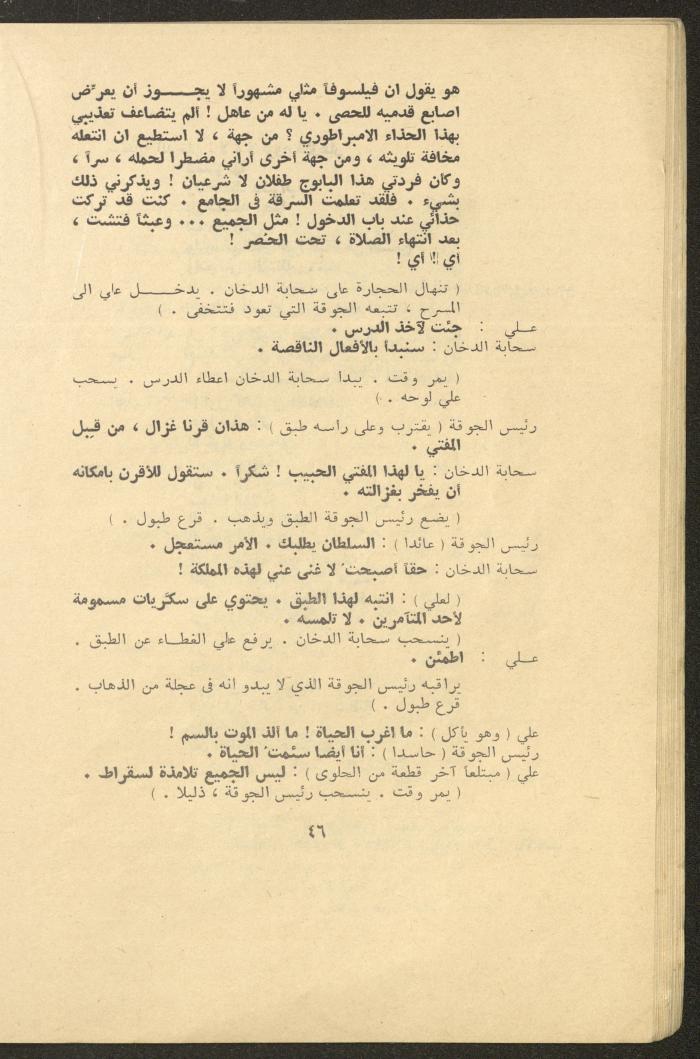 هو يقول ان فيلسوفاً مثلي مشهوراً لا يجـــوز أن يعرِّض
اصابع قدميه للحصى . يا له من عاهل ! ألم يتضاعف تعذيبي
بهذا الحذاء الامبراطوري ؟ من جهة ، لا استطيع ان انتعله
مخافة تلويثه ، ومن جهة أخرى أراني مضطرا لحمله ، سراً ،
وكأن فردتي هذا البابوج طفلان لا شرعيان ! ويذكرني ذلك
بشيء . فلقد تعلمت السرقة في الجامع . كنت قد تركت
حذائي عند باب الدخول ! مثل الجميع ... وعبثاً فتشت ،
بعد انتهاء الصلاة ، تحت الحُصر !
أي !! أي !
( تنهال الحجارة على سحابة الدخان . يدخـــل علي الى
المسرح ، تتبعه الجوقة التي تعود فتتخفى . )
علـي : جئت لآخذ الدرس .
سحابة الدخان : سنبدأ بالأفعال الناقصة .
( يمر وقت . يبدأ سحابة الدخان اعطاء الدرس . يسحب
علي لوحه . )
رئيس الجوقة ( يقترب وعلى راسه طبق ) : هذان قرنا غزال ، من قِبل
المفتي .
سحابة الدخان : يا لهذا المفتي الحبيب ! شكراً . ستقول للأقرن بامكانه
أن يفخر بغزالته .
( يضع رئيس الجوقة الطبق ويذهب . قرع طبول . )
رئيس الجوقة ( عائدا ) : السلطان يطلبك . الأمر مستعجل .
سحابة الدخان : حقاً أصبحتُ لا غنى عني لهذه المملكة !
( لعلي ) : انتبه لهذا الطبق . يحتوي على سكّريات مسمومة
لأحد المتآمرين . لا تلمسه .
( ينسحب سحابة الدخان . يرفع علي الغطـاء عن الطبق .
علـي : اطمئن .
يراقبه رئيس الجوقة الذي لا يبدو انه في عجلة من الذهاب .
قرع طبول . )
علي ( وهو يأكل ) : ما اغرب الحياة ! ما ألذ الموت بالسم !
رئيس الجوقة ( حاسدا ) : أنا أيضا سئمتُ الحياة .
علي ( مبتلعاً آخر قطعة من الحلوى ) : ليس الجميع تلامذة لسقراط .
( يمر وقت . ينسحب رئيس الجوقة ، ذليلا . )
٤٦